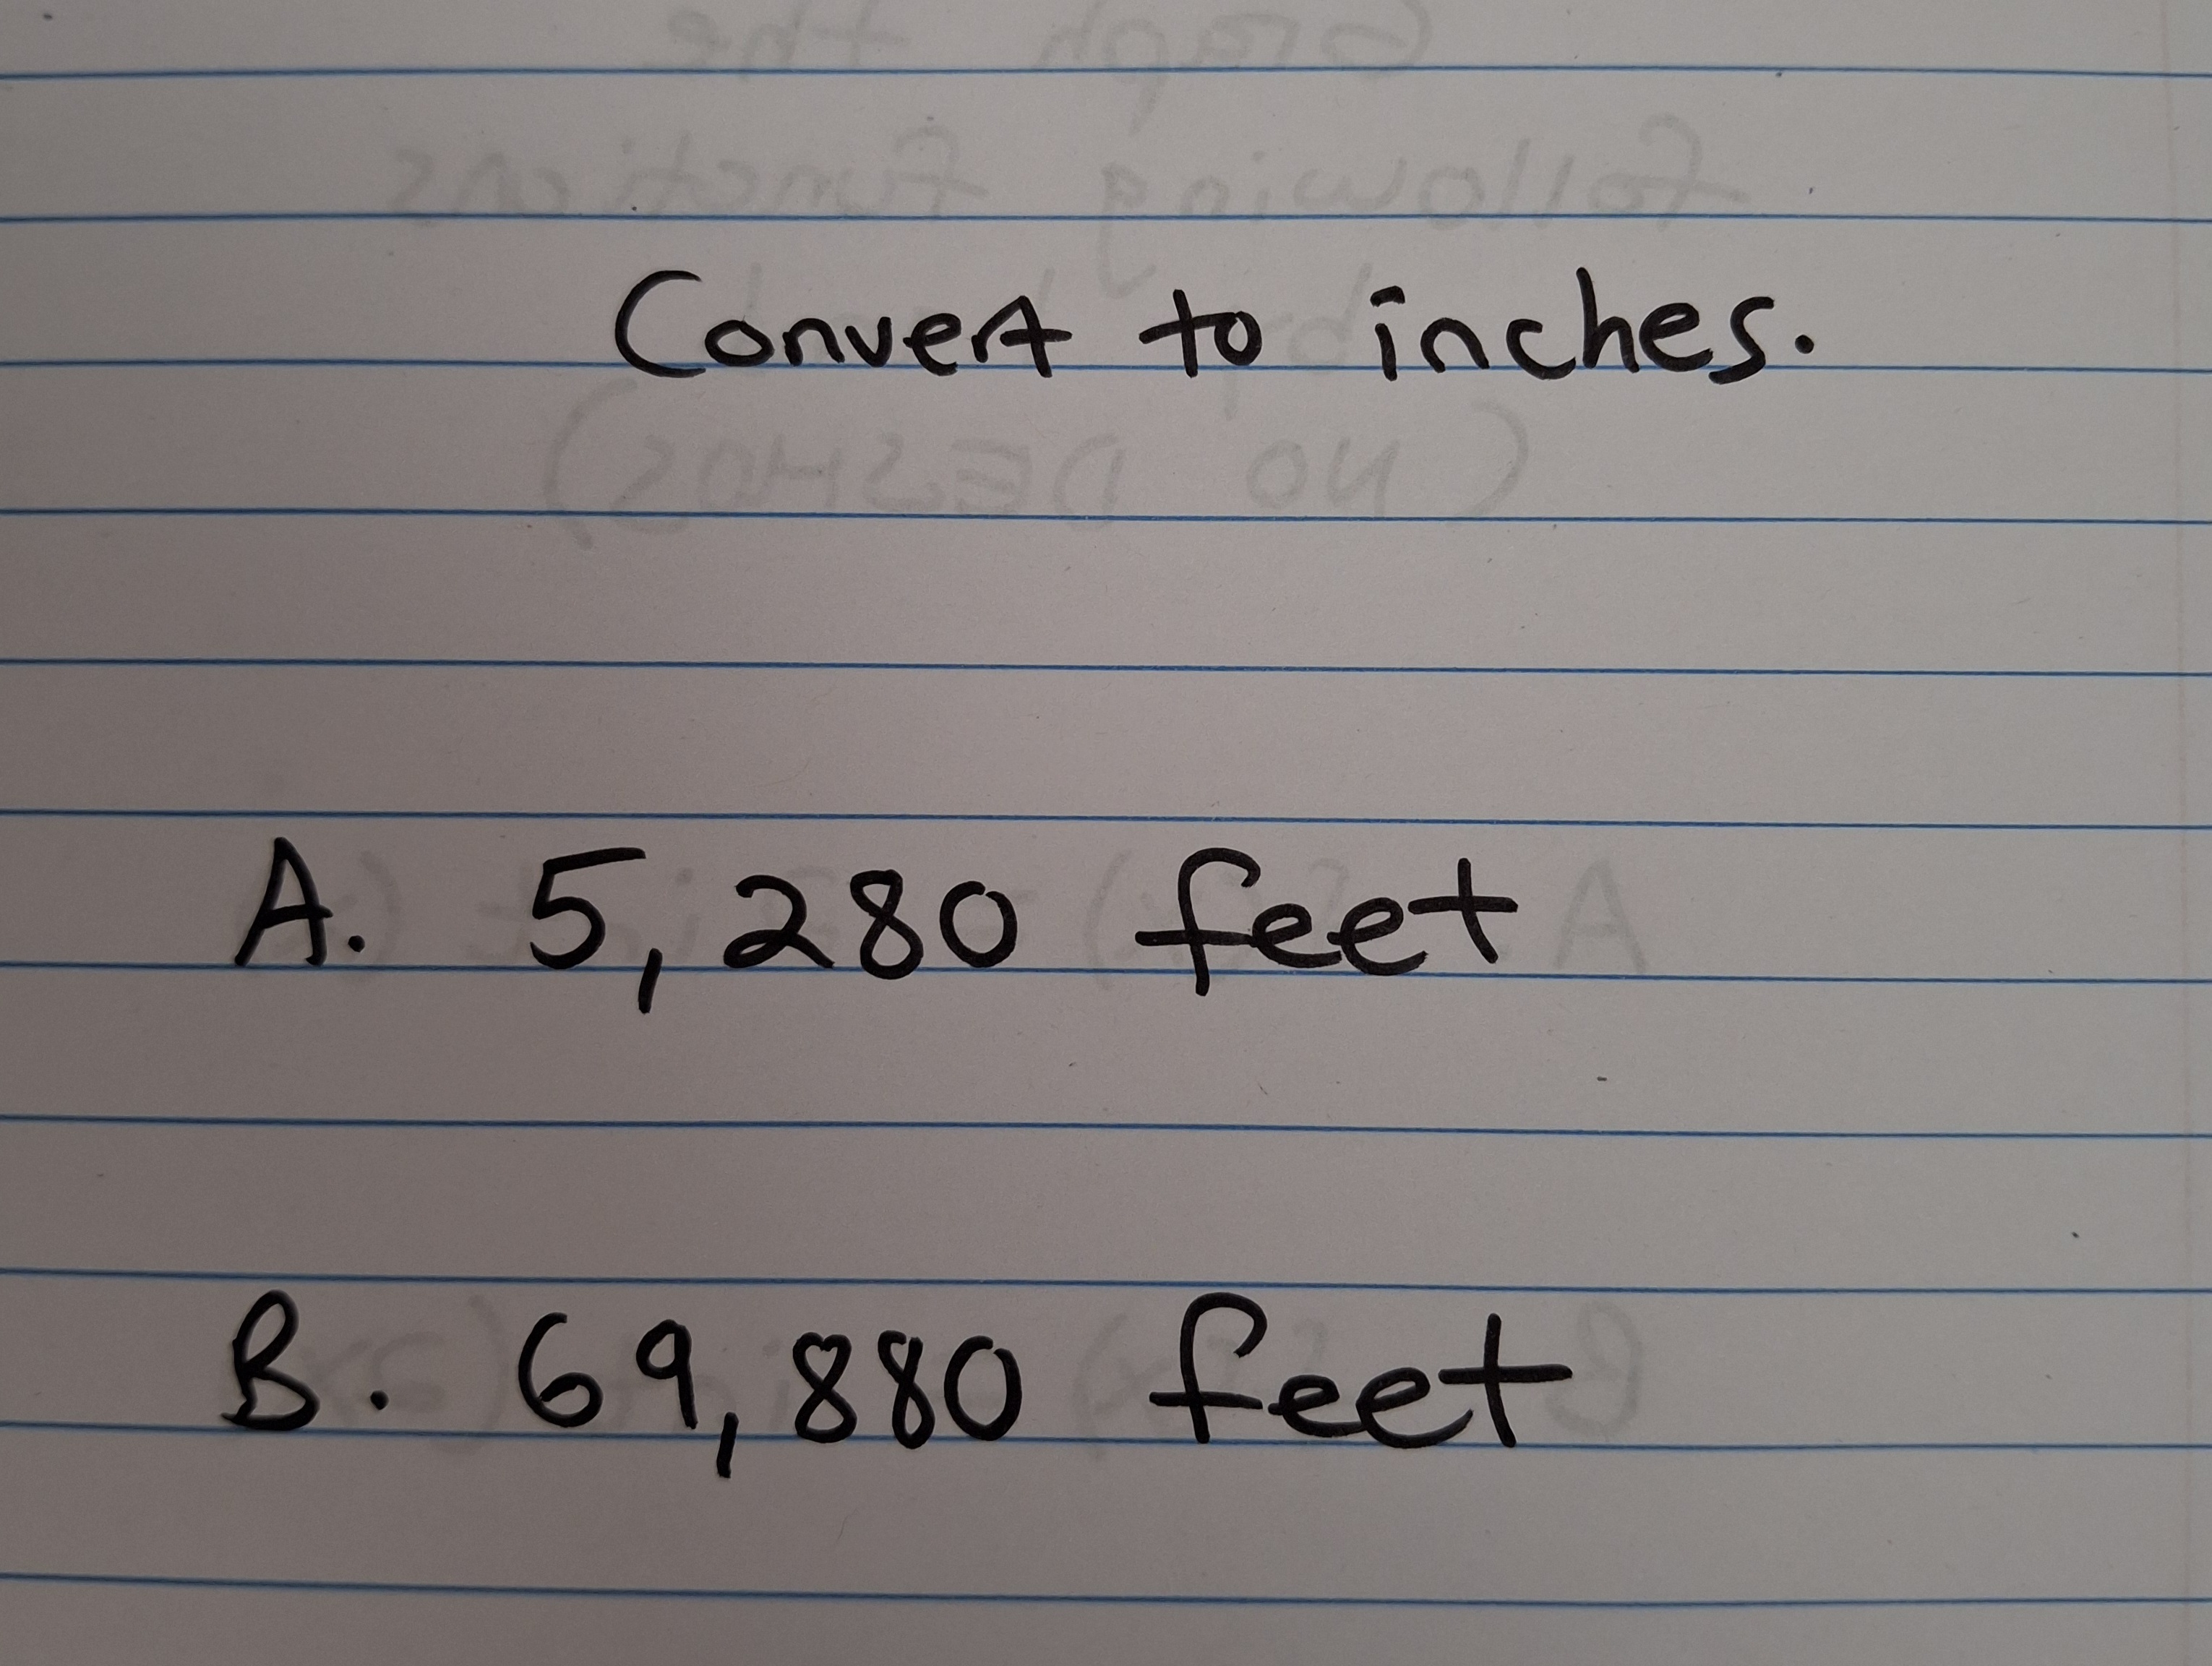 Convert to inches.
A. 5,280 feet
B. 69,880 feet